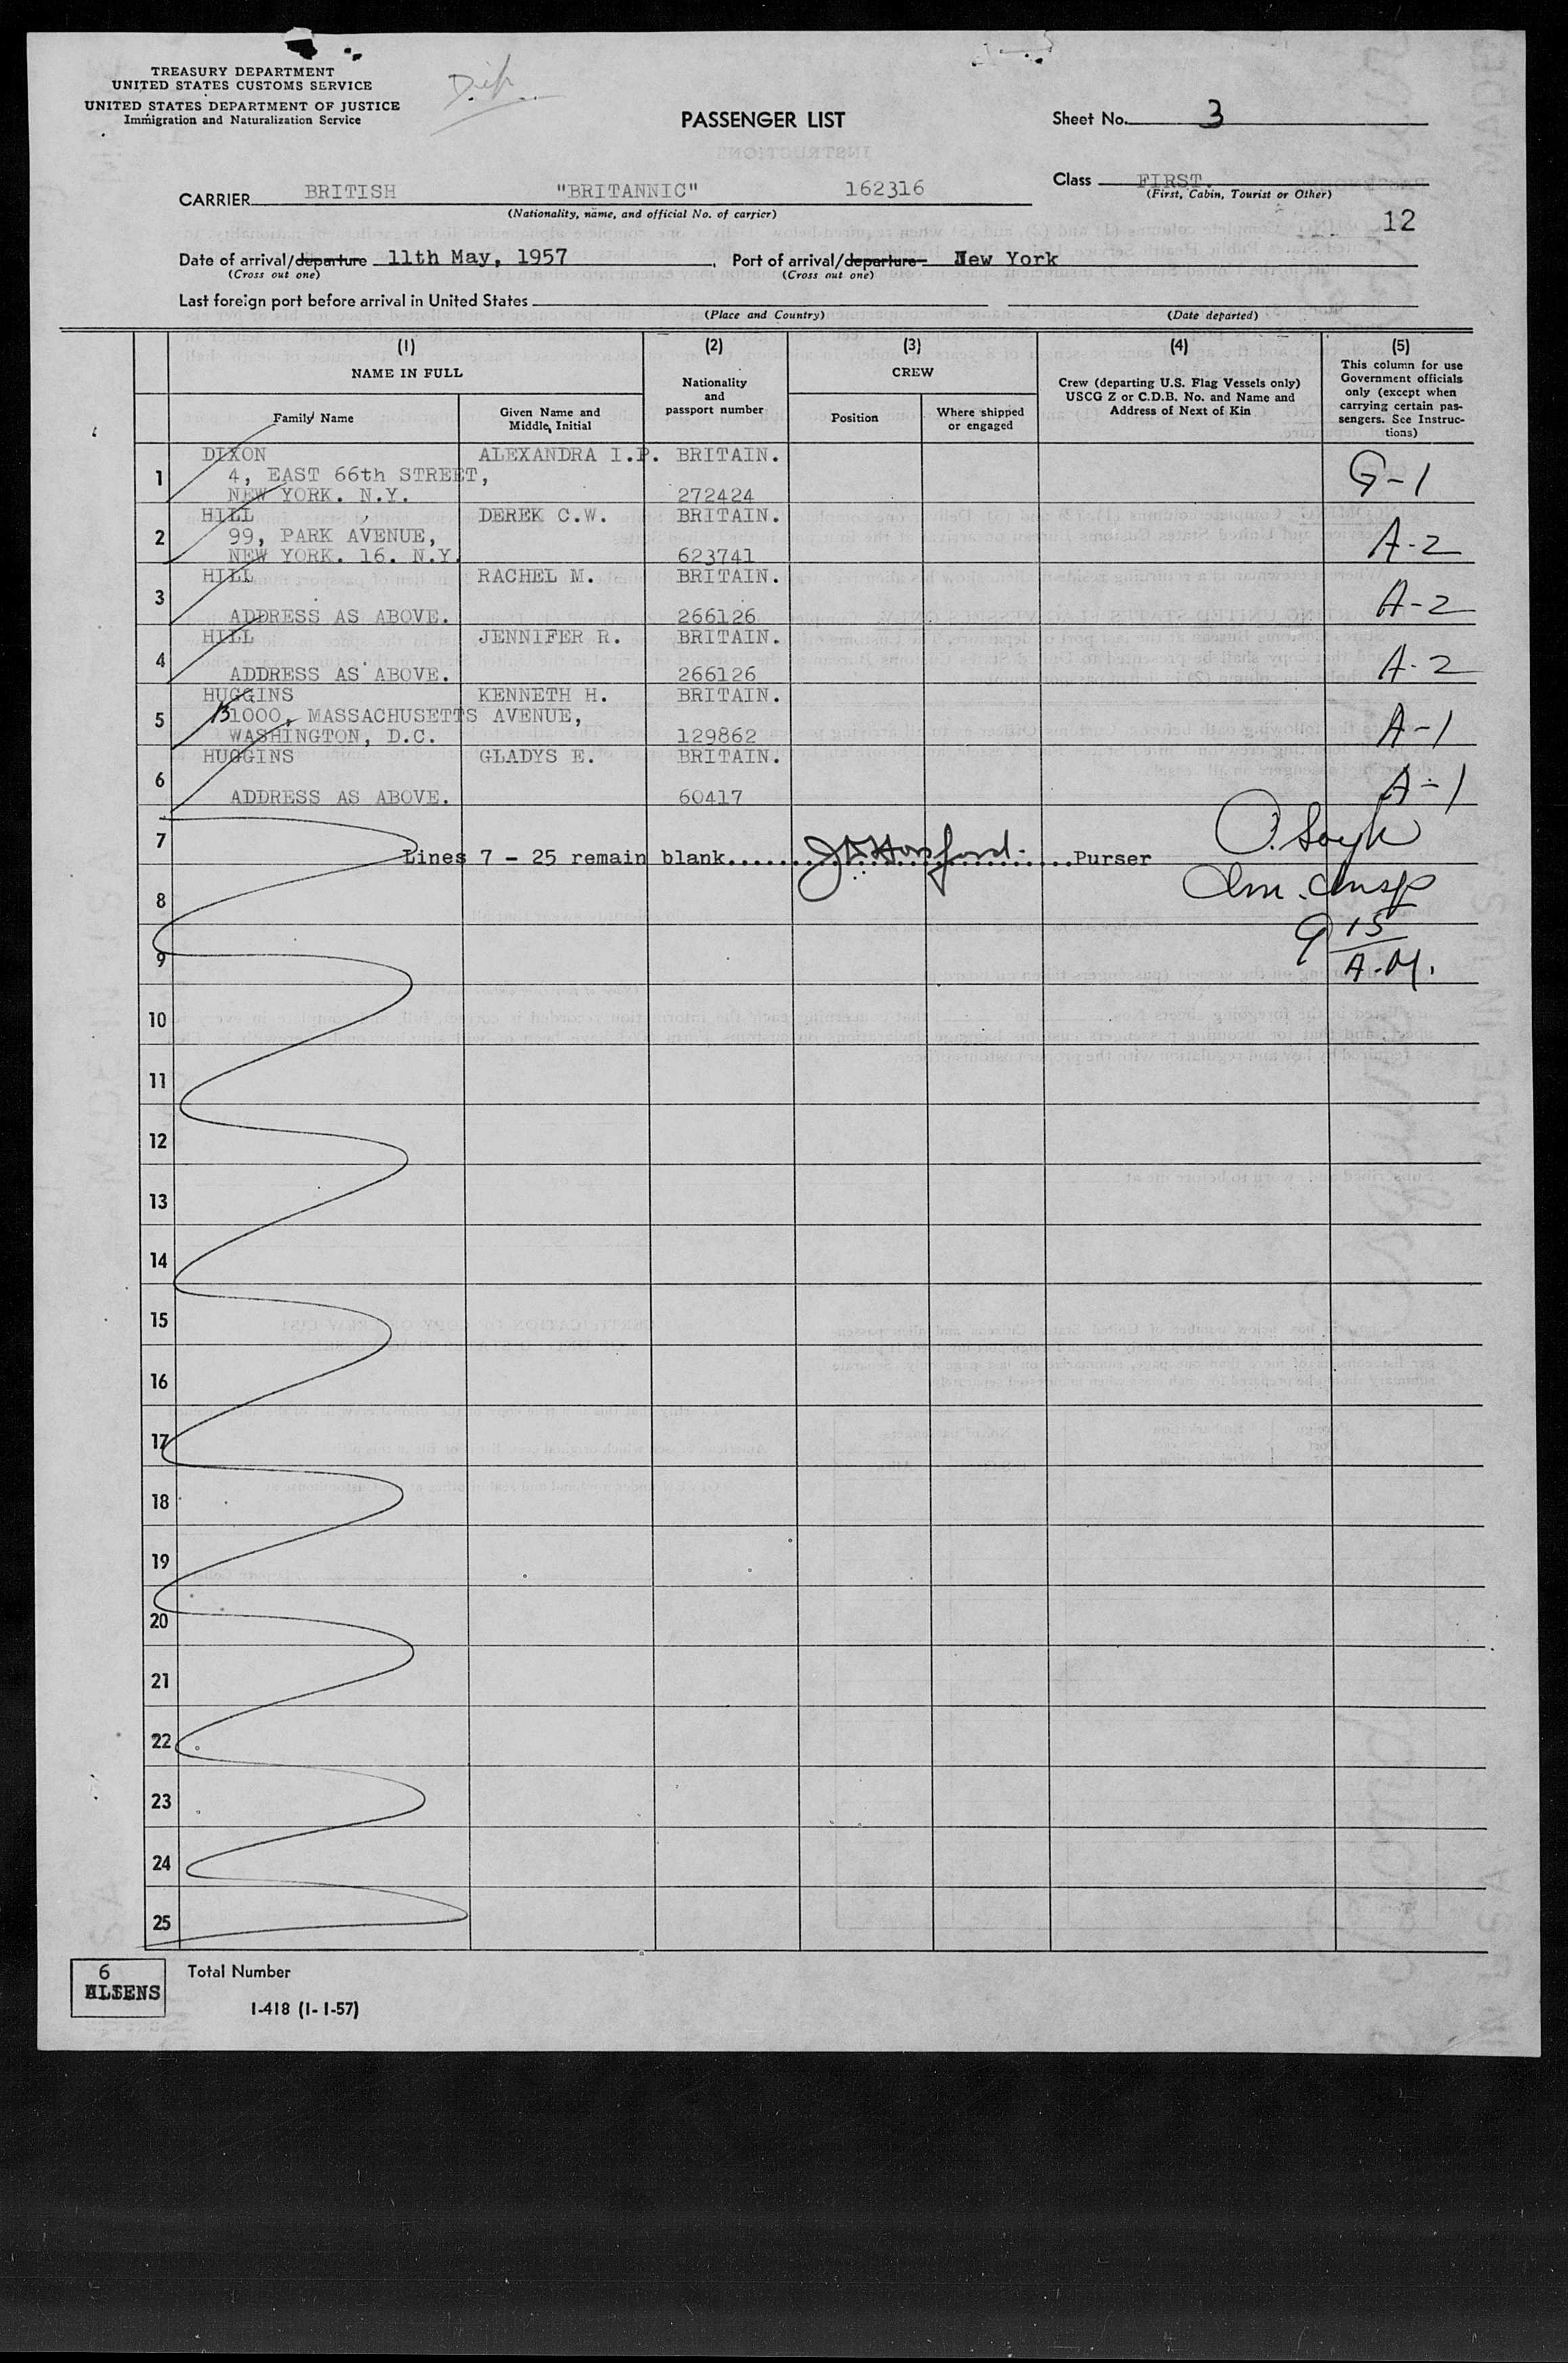 TREASURY DEPARTMENT
UNITED STATES CUSTOMS SERVICE
UNITED STATES DEPARTMENT OF JUSTICE
Immigration and Naturalization Service
Dip.
PASSENGER LIST
Sheet No. 3
CARRIER BRITISH "BRITANNIC" 162316
(Nationality, name, and official No. of carrier)
Class FIRST.
(First, Cabin, Tourist or Other)
12
Date of arrival/departure 11th May, 1957, Port of arrival/departure New York
(Cross out one) (Cross out one)
Last foreign port before arrival in United States
(Place and Country) (Date departed)
(1) NAME IN FULL
Family Name
Given Name and Middle Initial
(2) Nationality and passport number
(3) CREW
Position
Where shipped or engaged
(4) Crew (departing U.S. Flag Vessels only) USCG Z or C.D.B. No. and Name and Address of Next of Kin
(5) This column for use Government officials only (except when carrying certain passengers. See Instructions)
1 DIXON ALEXANDRA I.P. BRITAIN.
4, EAST 66th STREET,
NEW YORK. N.Y. 272424 G-1
2 HILL DEREK C.W. BRITAIN.
99, PARK AVENUE,
NEW YORK. 16. N.Y. 623741 A-2
3 HILL RACHEL M. BRITAIN.
ADDRESS AS ABOVE. 266126 A-2
4 HILL JENNIFER R. BRITAIN.
ADDRESS AS ABOVE. 266126 A-2
5 HUGGINS KENNETH H. BRITAIN.
31000, MASSACHUSETTS AVENUE,
WASHINGTON, D.C. 129862 A-1
6 HUGGINS GLADYS E. BRITAIN.
ADDRESS AS ABOVE. 60417 A-1
7
Lines 7 - 25 remain blank...... Purser
8
Imm. Insp
9 15
A.M.
9
10
11
12
13
14
15
16
17
18
19
20
21
22
23
24
25
6
ALIENS
Total Number
I-418 (1-1-57)